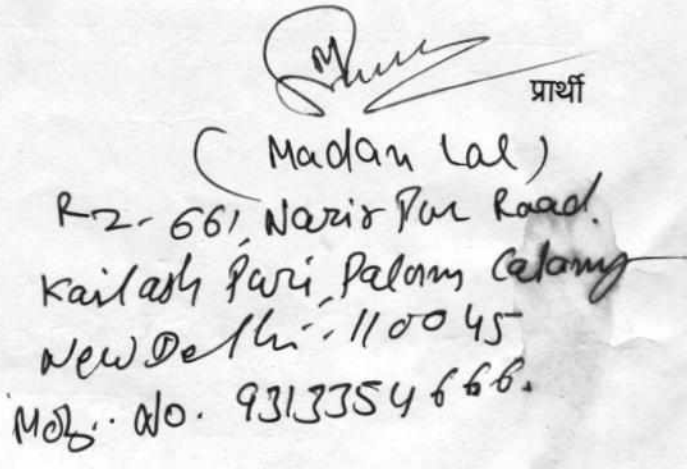 प्रार्थी
(Madan Lal)
RZ-661, Nasir Pur Road.
Kailash Puri, Palam Calony
New Delhi-110045
Mob. No. 9313354666.